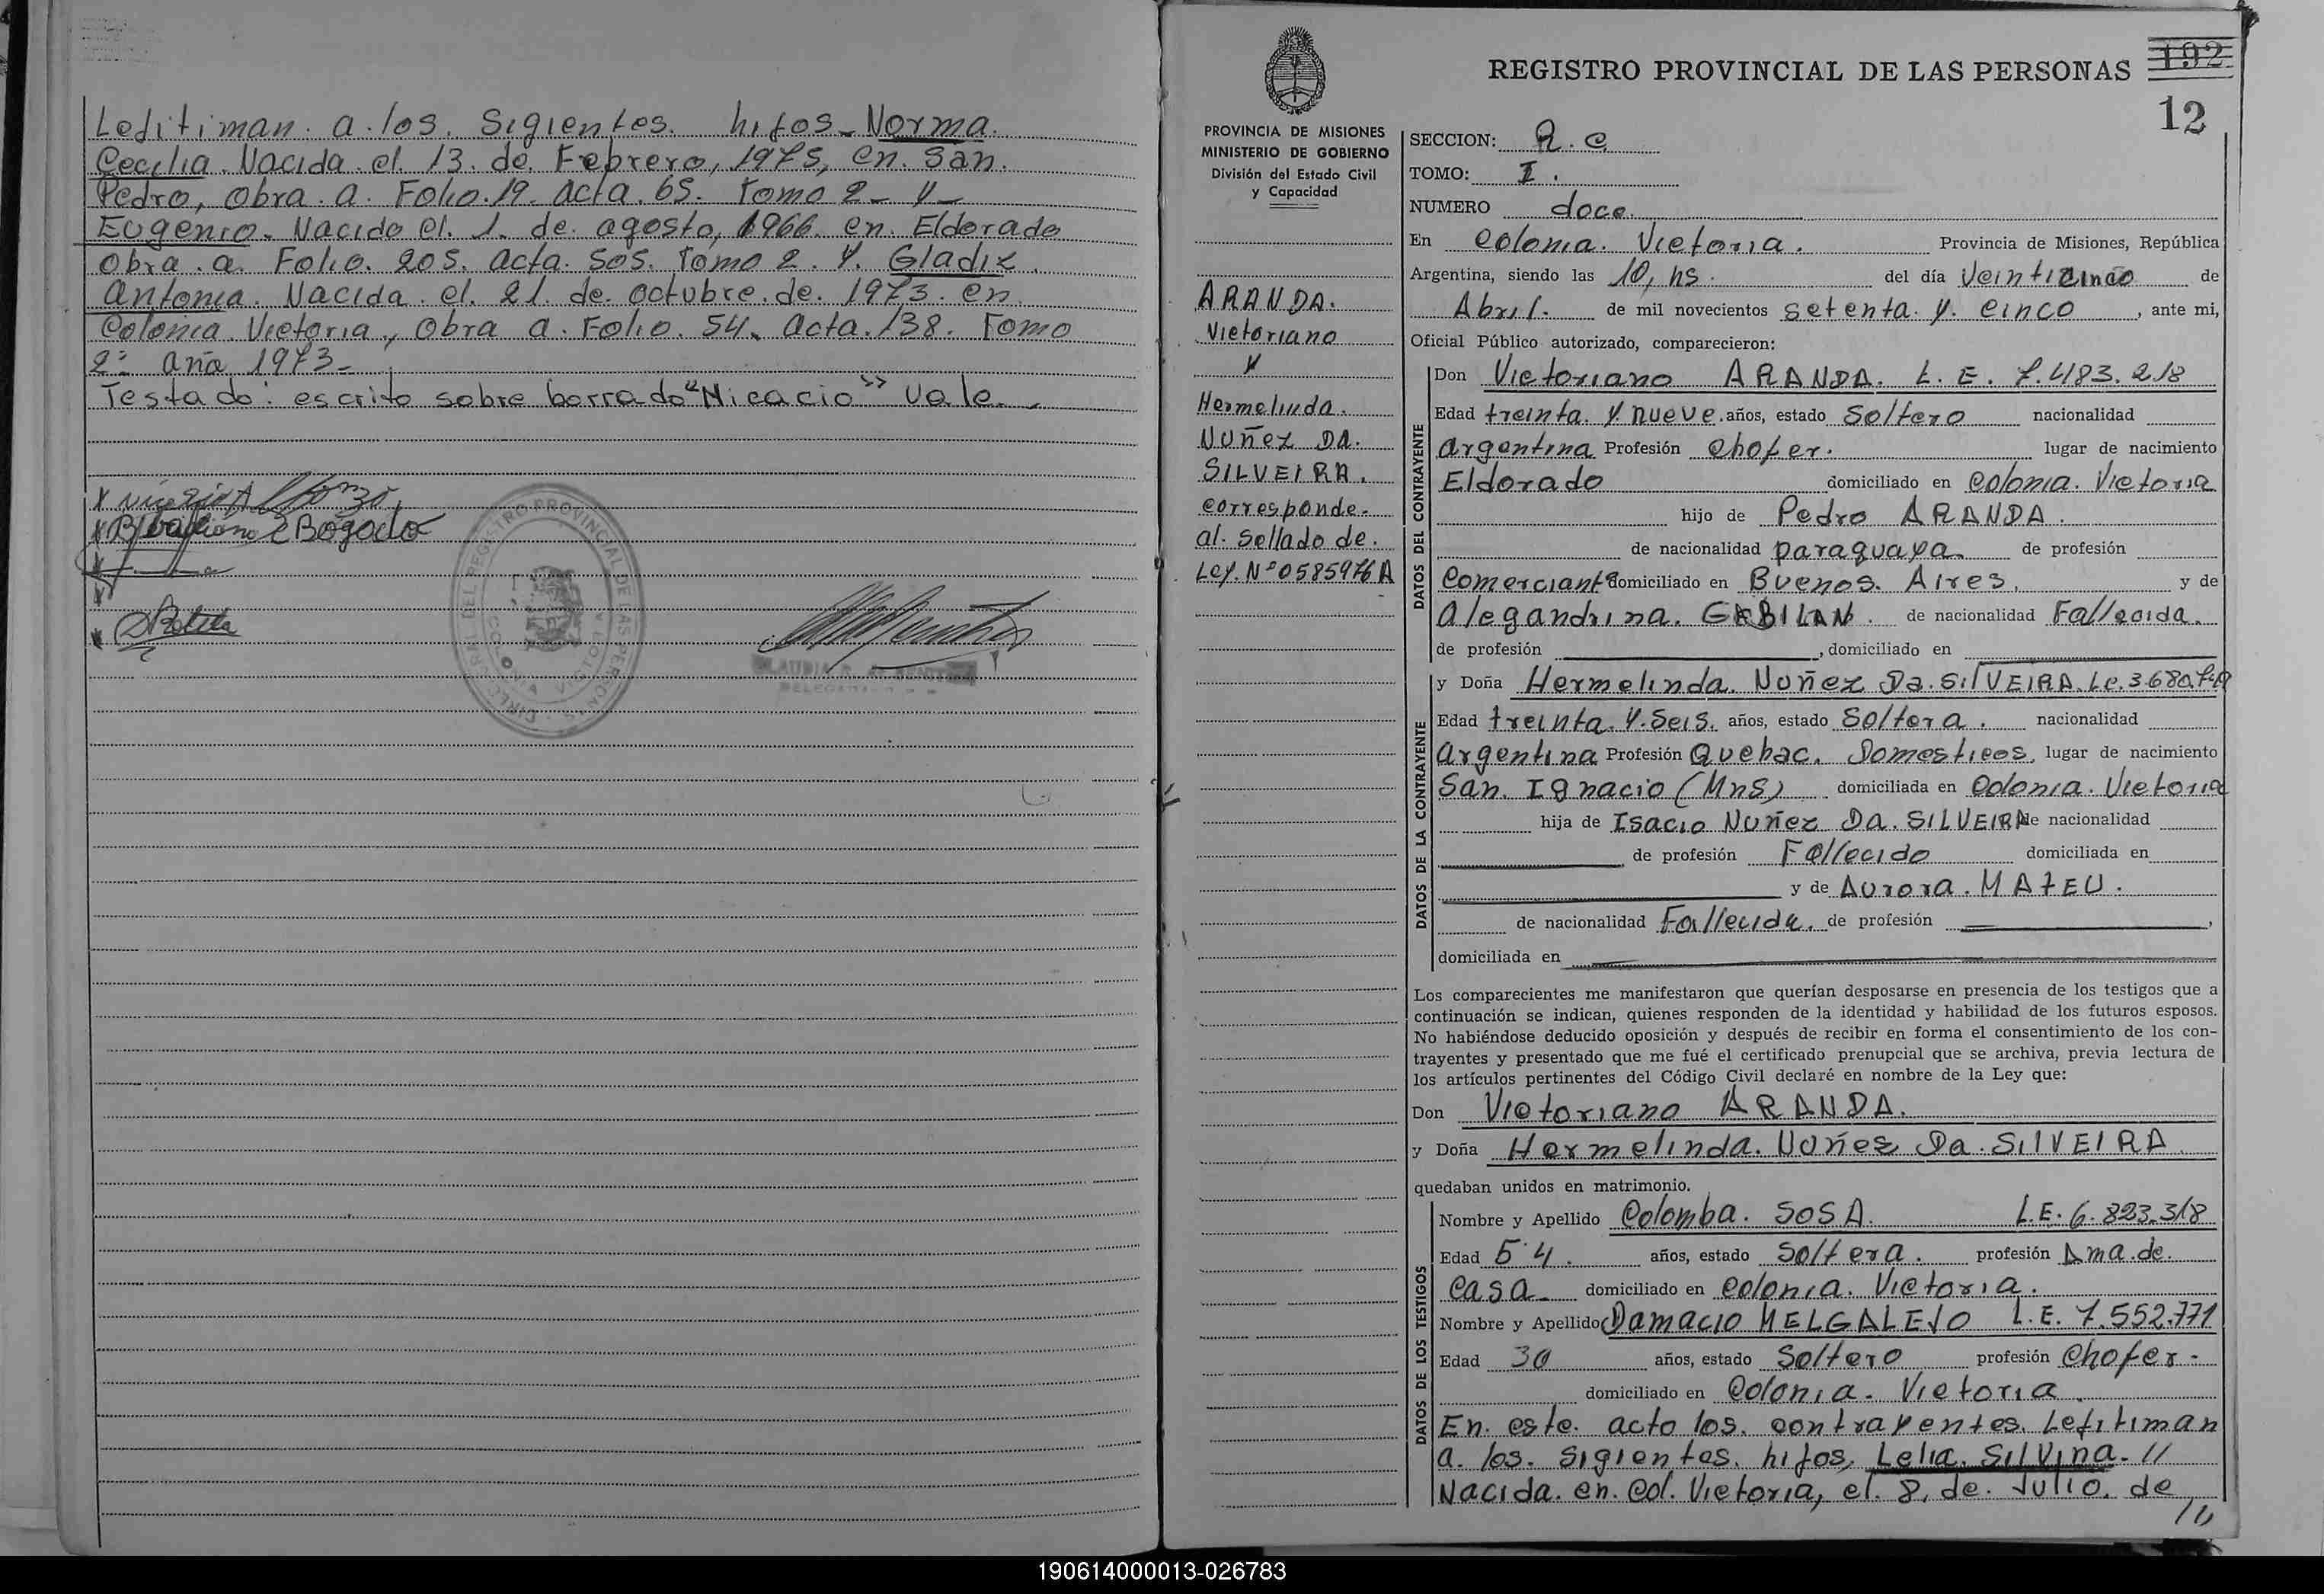 Lefitiman. a. los. Sigientes. hifos_ Norma.
Cecilia. Nacida. el. 13. de. Febrero, 1975, en. San.
Pedro, Obra. a. Folio. 19. acta. 65. Tomo 2_ y_
Eugenio. Nacido el. 1. de. agosto, 1966. en. Eldorado
Obra. a. Folio. 205. acta. 505. Tomo 2. y. Gladiz.
antonia. Nacida. el. 21. de. octubre. de. 1973. en.
Colonia. Victoria, Obra a. Folio. 54. acta. 138. Tomo
2º año 1973_
Testado: escrito sobre borrado "Nicacio" vale.
Bogado
REGISTRO PROVINCIAL DE LAS PERSONAS
COLONIA VICTORIA
REGISTRO PROVINCIAL DE LAS PERSONAS
192
12
PROVINCIA DE MISIONES
MINISTERIO DE GOBIERNO
División del Estado Civil
y Capacidad
ARANDA.
Victoriano
y
Hermelinda.
Nuñez DA.
SILVEIRA.
corresponde.
al. Sellado de.
Ley. Nº 0585976 A
SECCION: R. C
TOMO: I.
NUMERO doce.
En Colonia. Victoria. Provincia de Misiones, República
Argentina, siendo las 10, hs. del día Veinticinco de
Abril. de mil novecientos setenta. y. cinco, ante mi,
Oficial Público autorizado, comparecieron:
DATOS DEL CONTRAYENTE
Don Victoriano ARANDA. L. E. 7.483.218
Edad treinta. y nueve. años, estado Soltero nacionalidad
argentina Profesión Chofer. lugar de nacimiento
Eldorado domiciliado en Colonia. Victoria
hijo de Pedro ARANDA.
de nacionalidad paraguaya. de profesión
Comerciante domiciliado en Buenos. Aires, y de
Alegandrina. GABILAN. de nacionalidad Fallecida.
de profesión , domiciliado en
DATOS DE LA CONTRAYENTE
y Doña Hermelinda. Nuñez Da. SilVEIRA. Lc. 3.680.
Edad treinta. y. Seis. años, estado Soltera. nacionalidad
argentina Profesión Quehac. Domesticos, lugar de nacimiento
San. Ignacio (Mns) domiciliada en Colonia. Victoria
hija de Isacio Nuñez Da. SILVEIRA de nacionalidad
de profesión Fallecido domiciliada en
y de Aurora. MATEU.
de nacionalidad Fallecida. de profesión ,
domiciliada en
Los comparecientes me manifestaron que querían desposarse en presencia de los testigos que a
continuación se indican, quienes responden de la identidad y habilidad de los futuros esposos.
No habiéndose deducido oposición y después de recibir en forma el consentimiento de los con-
trayentes y presentado que me fué el certificado prenupcial que se archiva, previa lectura de
los artículos pertinentes del Código Civil declaré en nombre de la Ley que:
Don Victoriano ARANDA.
y Doña Hermelinda. Nuñez Da. SilVEIRA
quedaban unidos en matrimonio.
DATOS DE LOS TESTIGOS
Nombre y Apellido Colomba. SOSA. L.E. 6.823.318
Edad 54. años, estado Soltera. profesión Ama.de.
Casa_ domiciliado en Colonia. Victoria.
Nombre y Apellido Damacio MELGALEJO L.E. 7.552.771
Edad 30 años, estado Soltero profesión Chofer-
domiciliado en Colonia. Victoria
En. este. acto los. contrayentes. Lefitiman
a. los. Sigientes. hifos, Lelia. SilVina. //
Nacida. en. Col. Victoria, el. 8, de. Julio. de
//
190614000013-026783